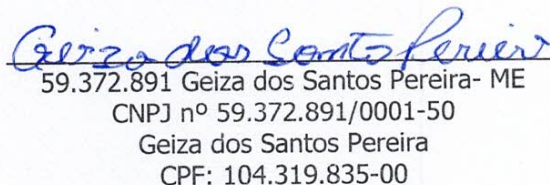 Geiza dos Santos Pereira
59.372.891 Geiza dos Santos Pereira- ME
CNPJ nº 59.372.891/0001-50
Geiza dos Santos Pereira
CPF: 104.319.835-00